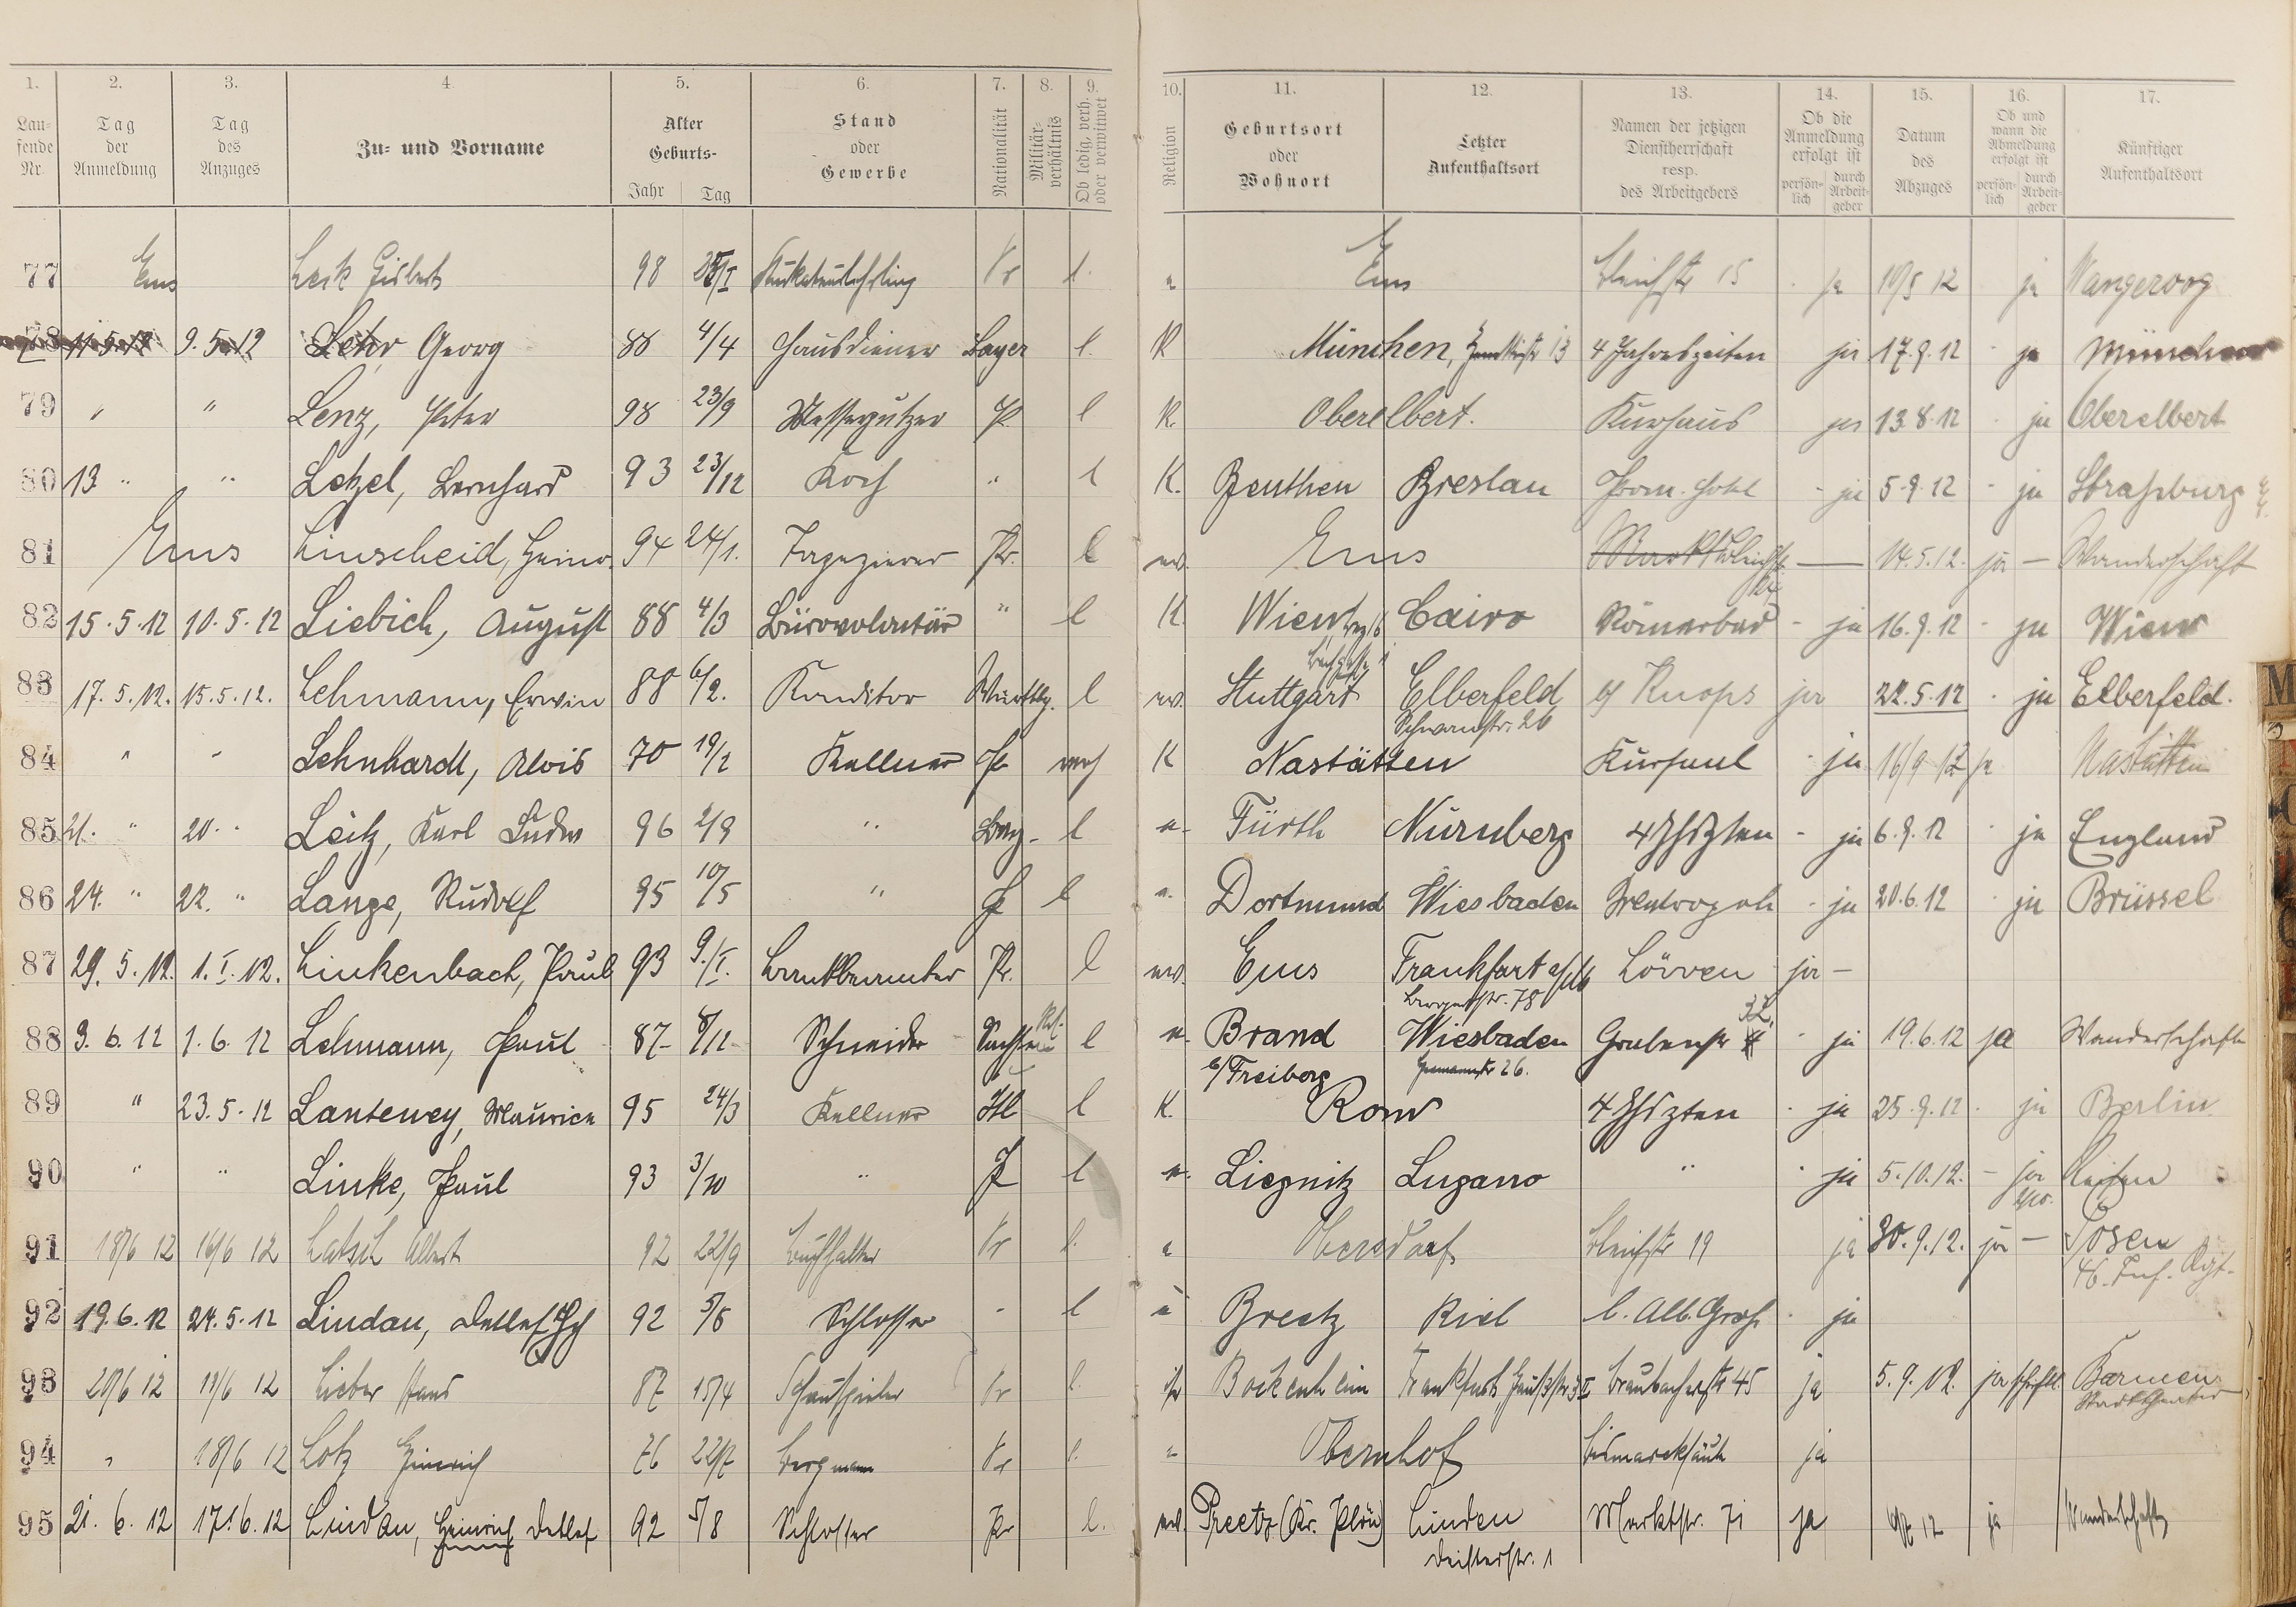 1. 2. 3. 4. 5. 6. 7. 8. 9. 10. 11. 12. 13. 14. 15. 16. 17.
Laufende Nr. Tag der Anmeldung Tag des Anzuges Zu- und Vorname Alter Geburts- Jahr Tag Stand oder Gewerbe Nationalität Militärverhältnis Ob ledig, verh. oder verwitwet Religion Geburtsort oder Wohnort Letzter Aufenthaltsort Namen der jetzigen Dienstherrschaft resp. des Arbeitgebers Ob die Anmeldung erfolgt ist persönlich durch Arbeitgeber Datum des Abzuges Ob und wann die Abmeldung erfolgt ist persönlich durch Arbeitgeber Künftiger Aufenthaltsort
77 Ems 98 Pr l. Ems Bleichstr 15 ja 10/5 12 ja Wangeroog
78 9.5.12 Lehr Georg 88 4/4 Hausdiener Bayer l. K München, 13 4 Jahreszeiten ja 17.9.12 ja München
79 " " Lenz, Peter 98 23/9 Messerputzer P. l K. Oberelbert. Kurhaus ja 13.8.12 ja Oberelbert
80 13 " " Letzel, Bernhard 93 23/12 Koch " l K. Beuthen Breslau Prom. Hotel ja 5.9.12 ja Straßburg
81 Ems Linscheid, Heinr. 94 24/1. Tapezierer Pr. l ev. Ems — 14.5.12. ja — Wanderschaft
82 15.5.12 10.5.12 Liebich, August 88 4/3 Bürovolontär " l K. Wien Cairo Römerbad ja 16.9.12 ja Wien
83 17.5.12. 15.5.12. Lehmann, Erwin 88 6/2. Konditor Württbg. l ev. Stuttgart Elberfeld b/ Knops ja 22.5.12 ja Elberfeld.
Schwanstr. 26
84 " " Lehnhardt, Alois 70 19/2 Kellner P verh K Nastätten Kursaal ja 16/9 12 ja Nastätten
85 21. " 20. " Leitz, Karl Ludw 96 2/9 " Bay. l Fürth Nürnberg 4 Jhszten ja 6.9.12 ja England
86 24. " 22. " Lange, Rudolf 95 10/5 " P l Dortmund Wiesbaden ja 20.6.12 ja Brüssel
87 29.5.12. 1.I.12. Linkenbach, Paul 93 9./I. Bankbeamter Pr. l ev. Ems Frankfurt a/M Löwen ja —
78
88 3.6.12 1.6.12 Lehmann, Paul 87 8/12 Schneider Sachsen l Brand Wiesbaden Grabenstr 32 ja 19.6.12 ja Wanderschaft
b/Freiberg 26.
89 " 23.5.12 Lanteney, Maurice 95 24/3 Kellner Itl l K. Rom 4 Jhszten ja 25.9.12 ja Berlin
90 " " Linke, Paul 93 3/10 " P l Liegnitz Lugano " ja 5.10.12. – ja Reisen
91 18/6 12 16/6 12 Latsch Albert 92 22/9 Buchhalter Pr l. Bleichstr 19 ja 30.9.12. ja — Posen
46. Inf. Rgt.
92 19.6.12 24.5.12 Lindau, Detlef Hch 92 5/8 Schlosser l Preetz Kiel b. Alb. ja
93 20/6 12 19/6 12 Lieber Hans 87 15/4 Schauspieler Pr l. Bockenheim Frankfurt Braubacherstr 45 ja 5.9.12. ja schriftl. Barmen
Stadttheater
94 " 18/6 12 Lotz Heinrich 76 22/7 Bergmann Pr l. Obernhof Bismarcksäule ja
95 21.6.12 17.6.12 Lindau, Heinrich Detlef 92 5/8 Schlosser Pr l. ev. Preetz (Kr. Plön) Linden Marktstr. 71 ja 12 ja Wanderschaft
Deisterstr. 1